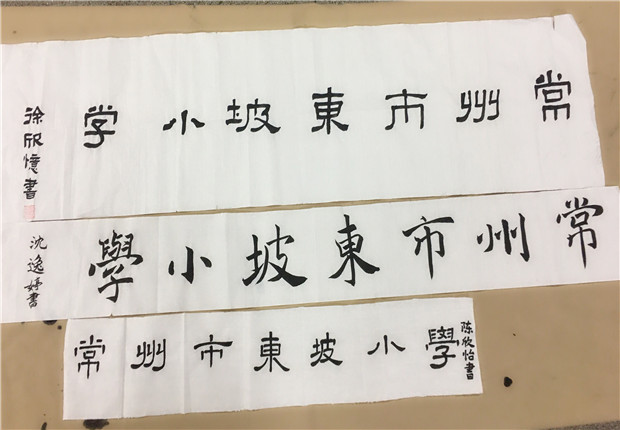 常州市東坡小学
徐欣憶書
常州市東坡小學
沈逸婷書
常州市東坡小學
陈欣怡書